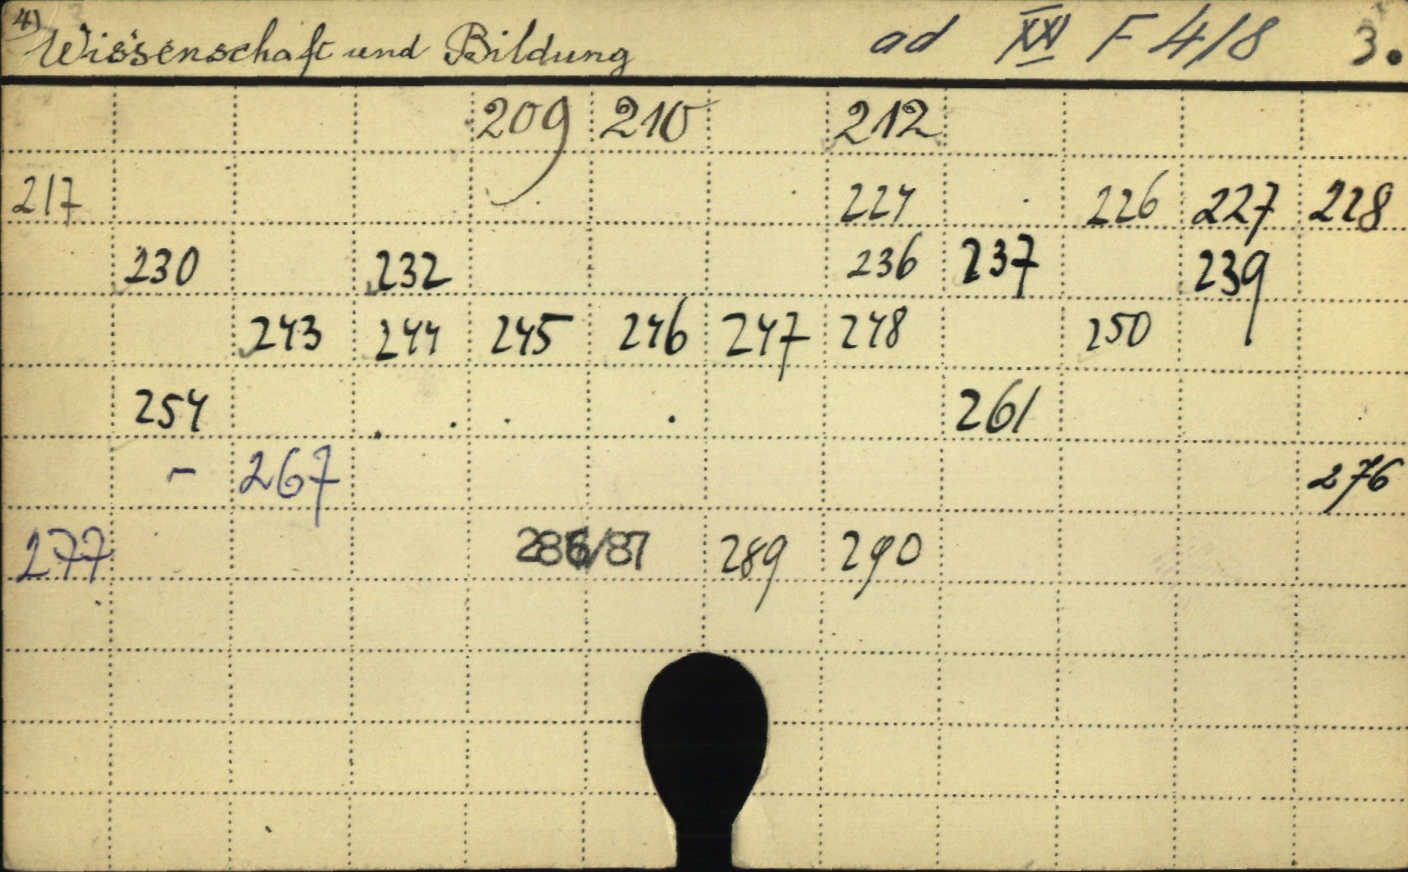 4) Wissenschaft und Bildung ad XXI F 4/8 3.
209 210 212
217 224 226 227 228
230 232 236 237 239
243 244 245 246 247 248 250
254 261
- 267 276
277 286/87 289 290